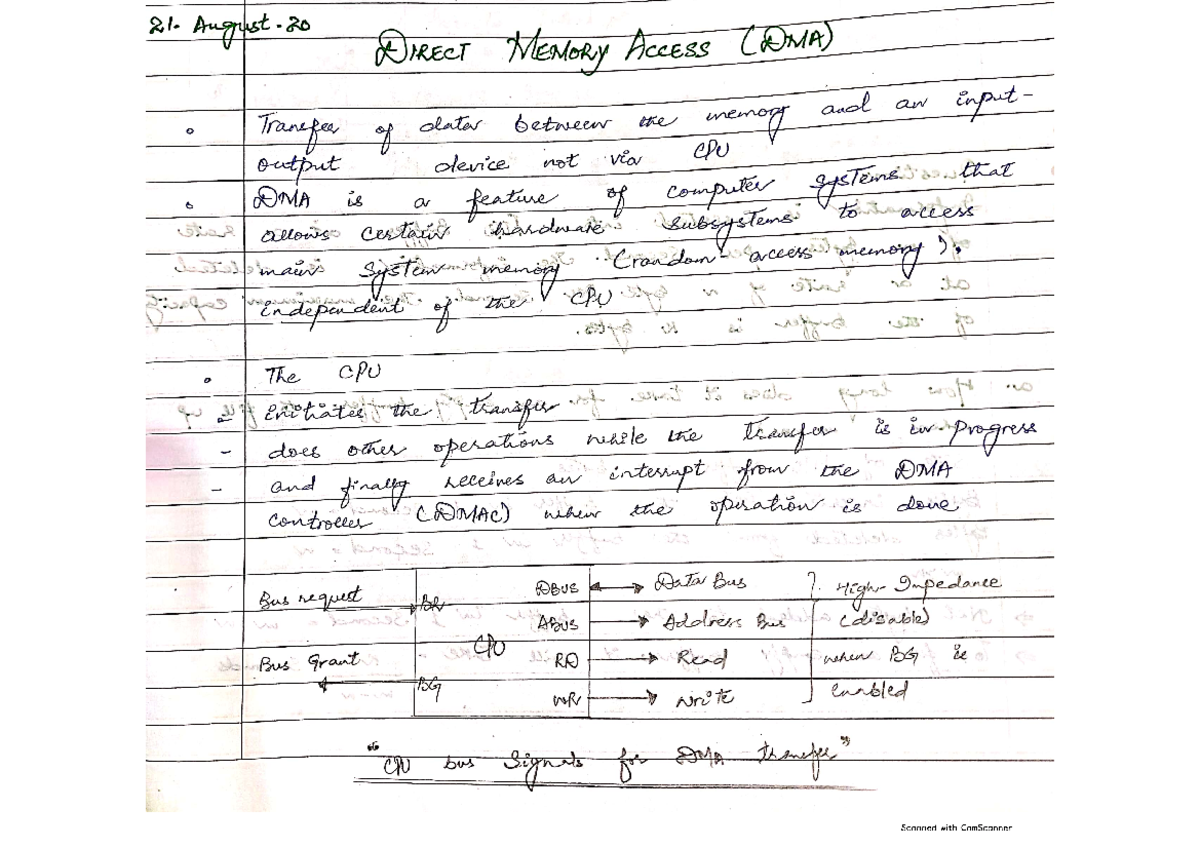 21. August. 20
DIRECT MEMORY ACCESS (DMA)
Transfer of data between the memory and an input-
output device not via CPU
DMA is a feature of computer systems that
allows certain hardware subsystems to access
main system memory (random-access memory).
independent of the CPU
The CPU
- Initiates the transfer
- does other operations while the transfer is in progress
- and finally receives an interrupt from the DMA
controller (DMAC) when the operation is done
Bus request BR DBUS Data Bus High-Impedance
ABUS Address Bus (disable)
CPU
Bus Grant RD Read when BG is
BG WR Write enabled
"CPU bus Signals for DMA transfer"
Scanned with CamScanner